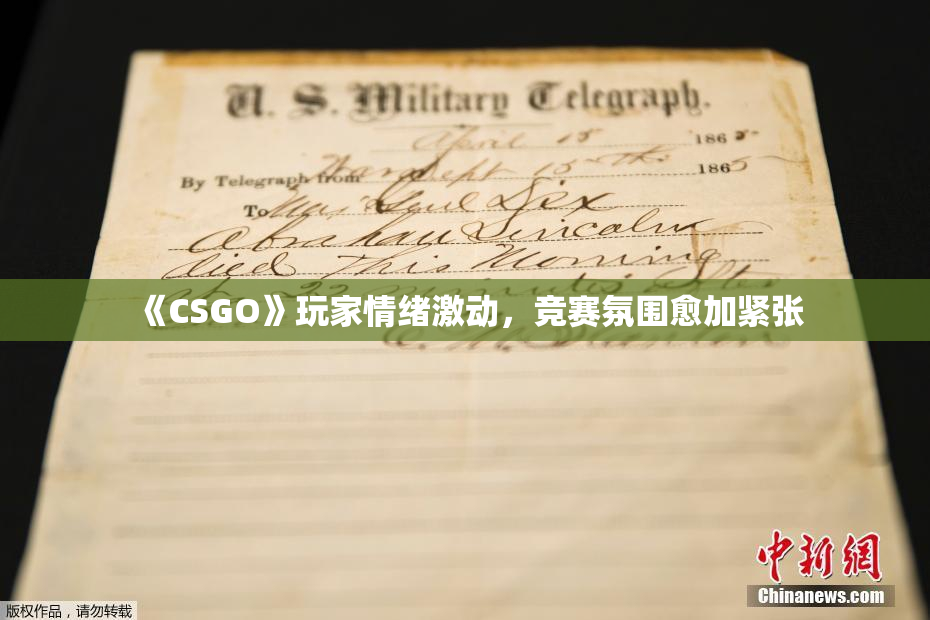 U. S. Military Telegraph.
April 15 1865
By Telegraph from War Dept 15th 1865
To Maj Genl Dix
Abraham Lincoln
died This Morning
at 22 minutes after
《CSGO》玩家情绪激动，竞赛氛围愈加紧张
E. M. Stanton
中新网
Chinanews.com
版权作品，请勿转载